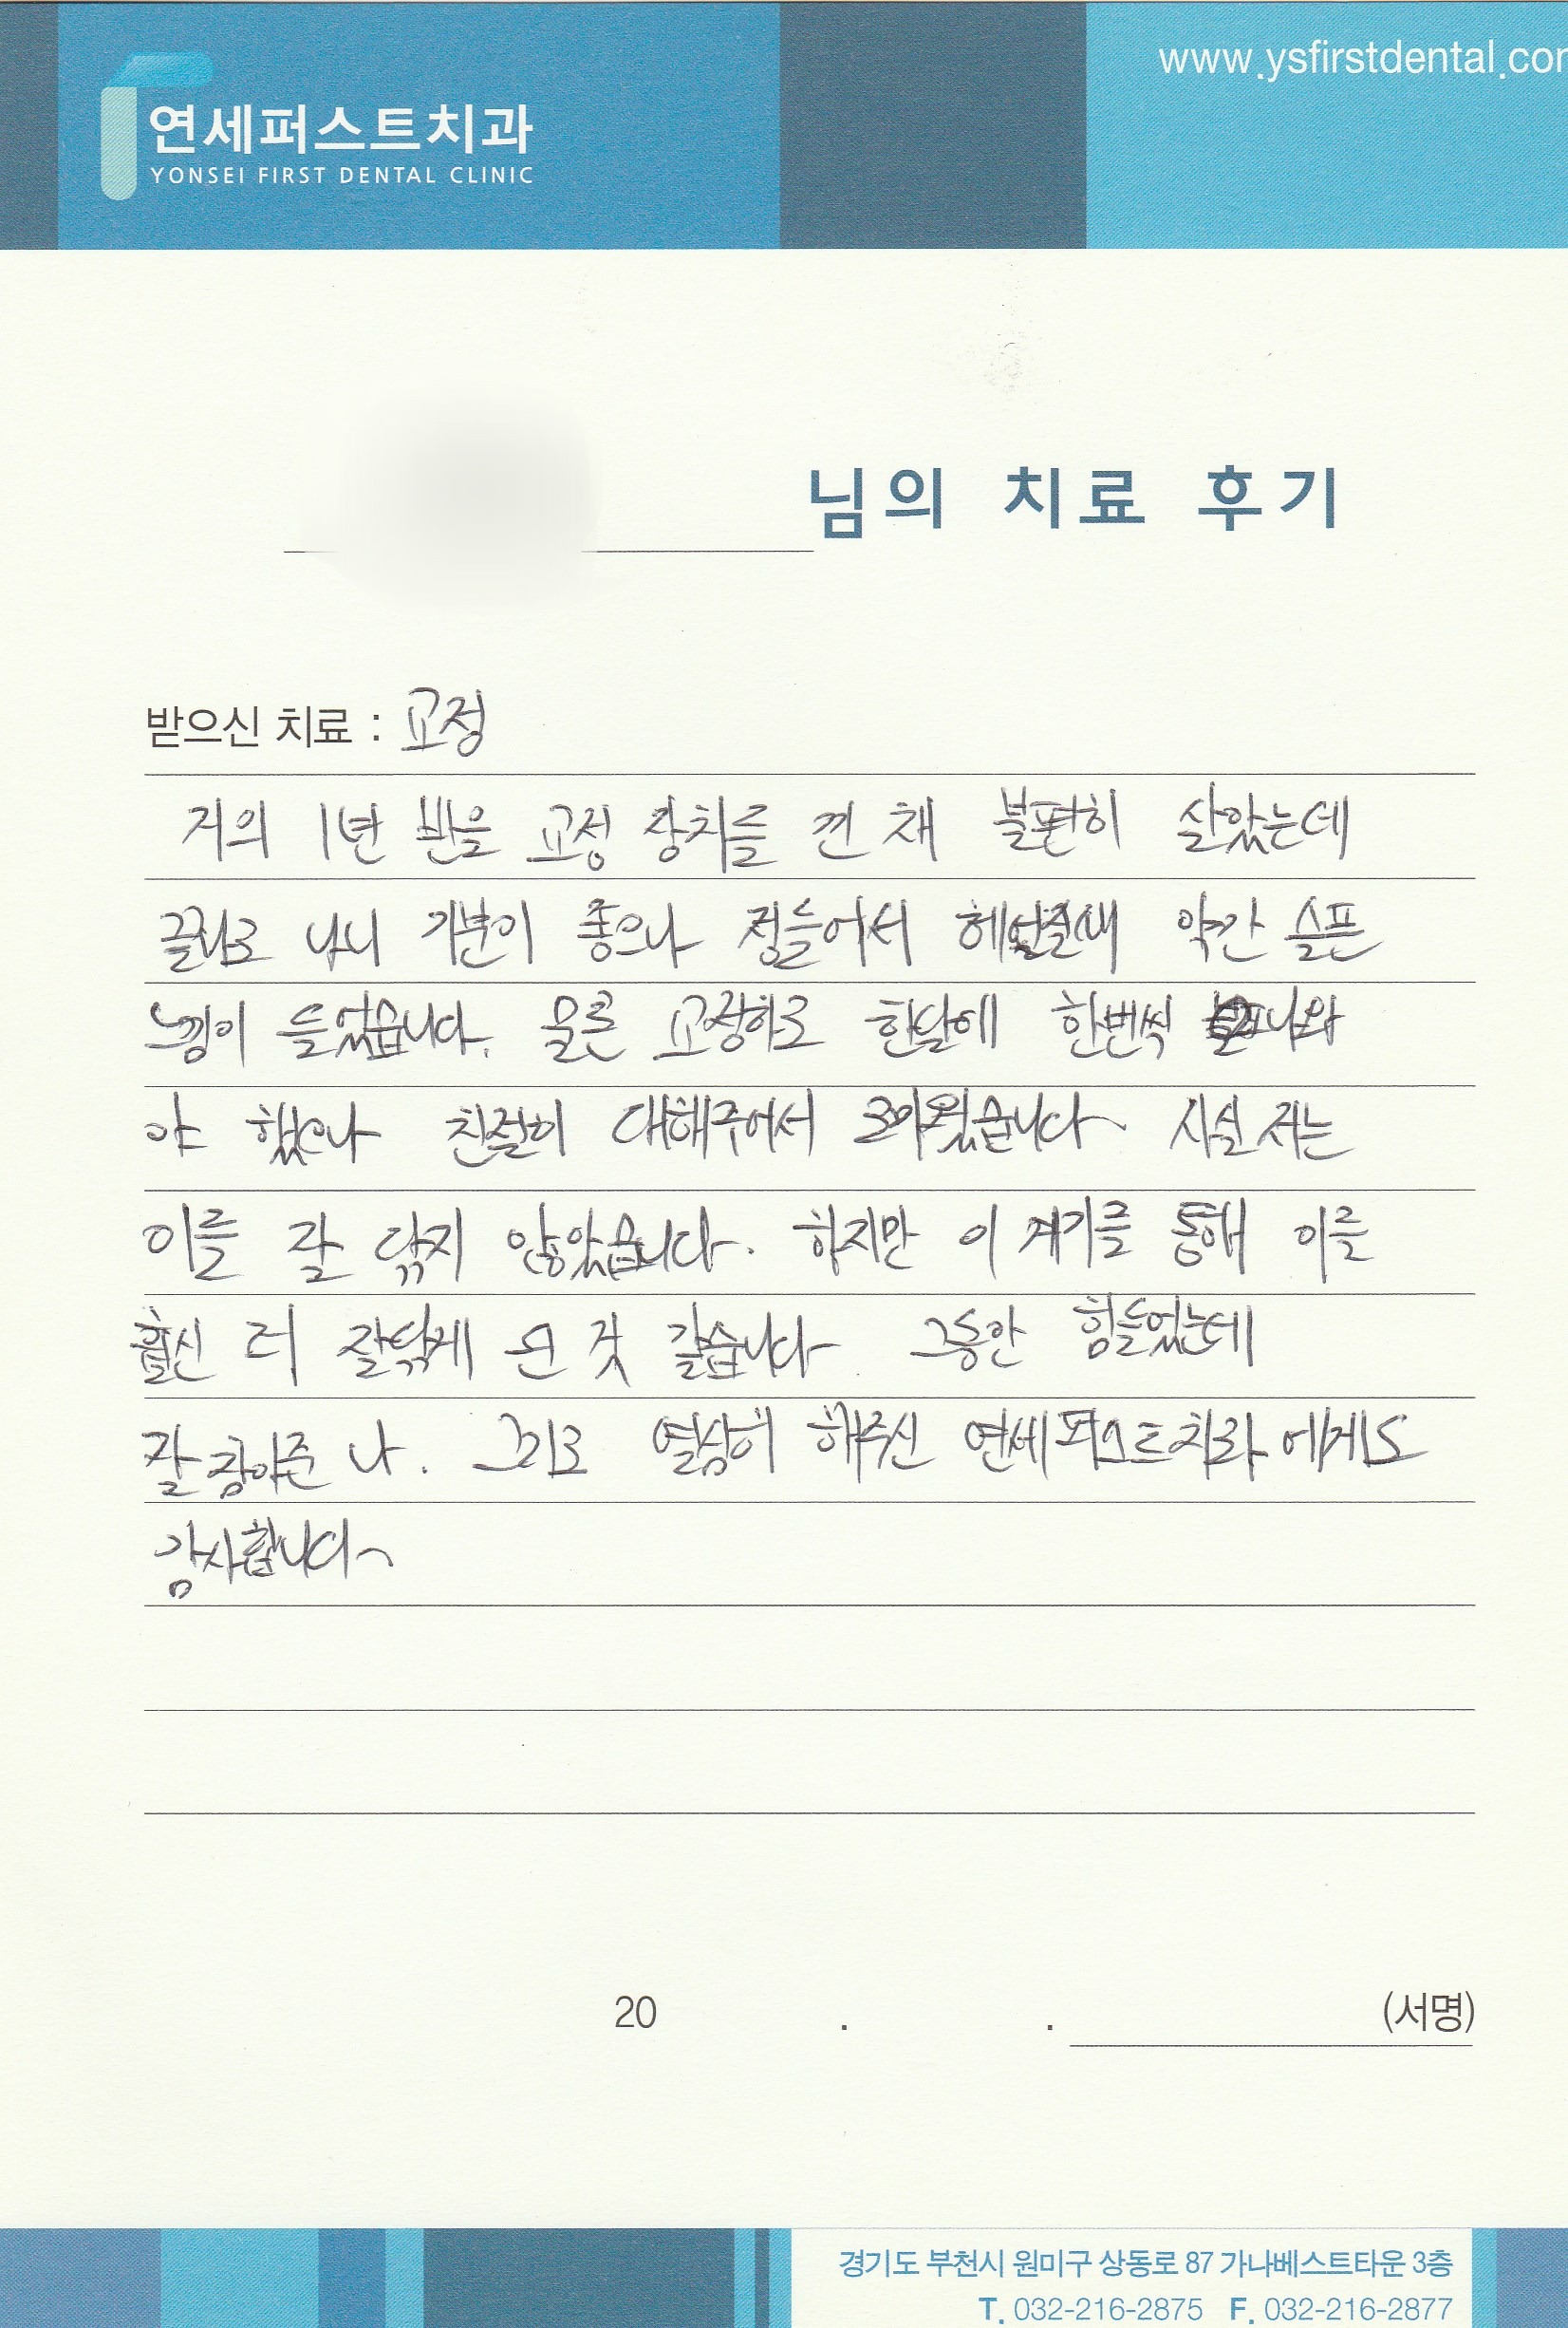 www.ysfirstdental.co
연세퍼스트치과
YONSEI FIRST DENTAL CLINIC
님의 치료 후기
받으신 치료 : 교정
거의 1년 반을 교정 장치를 낀 채 불편히 살았는데
끝나고 나니 기분이 좋으나 정들어서 약간 슬픈
느낌이 들었습니다. 물론 교정하고 한달에 한번씩 나와
야 했으나 친절히 대해주어서 고마웠습니다. 사실 저는
이를 잘 닦지 않았습니다. 하지만 이 계기를 통해 이를
훨신 더 잘닦게 된 것 같습니다. 그동안 힘들었는데
잘 참아준 나. 그리고 열심히 해주신 연세퍼스트치과 에게도
감사합니다~
20 . . (서명)
경기도 부천시 원미구 상동로 87 가나베스트타운 3층
T. 032-216-2875 F. 032-216-2877